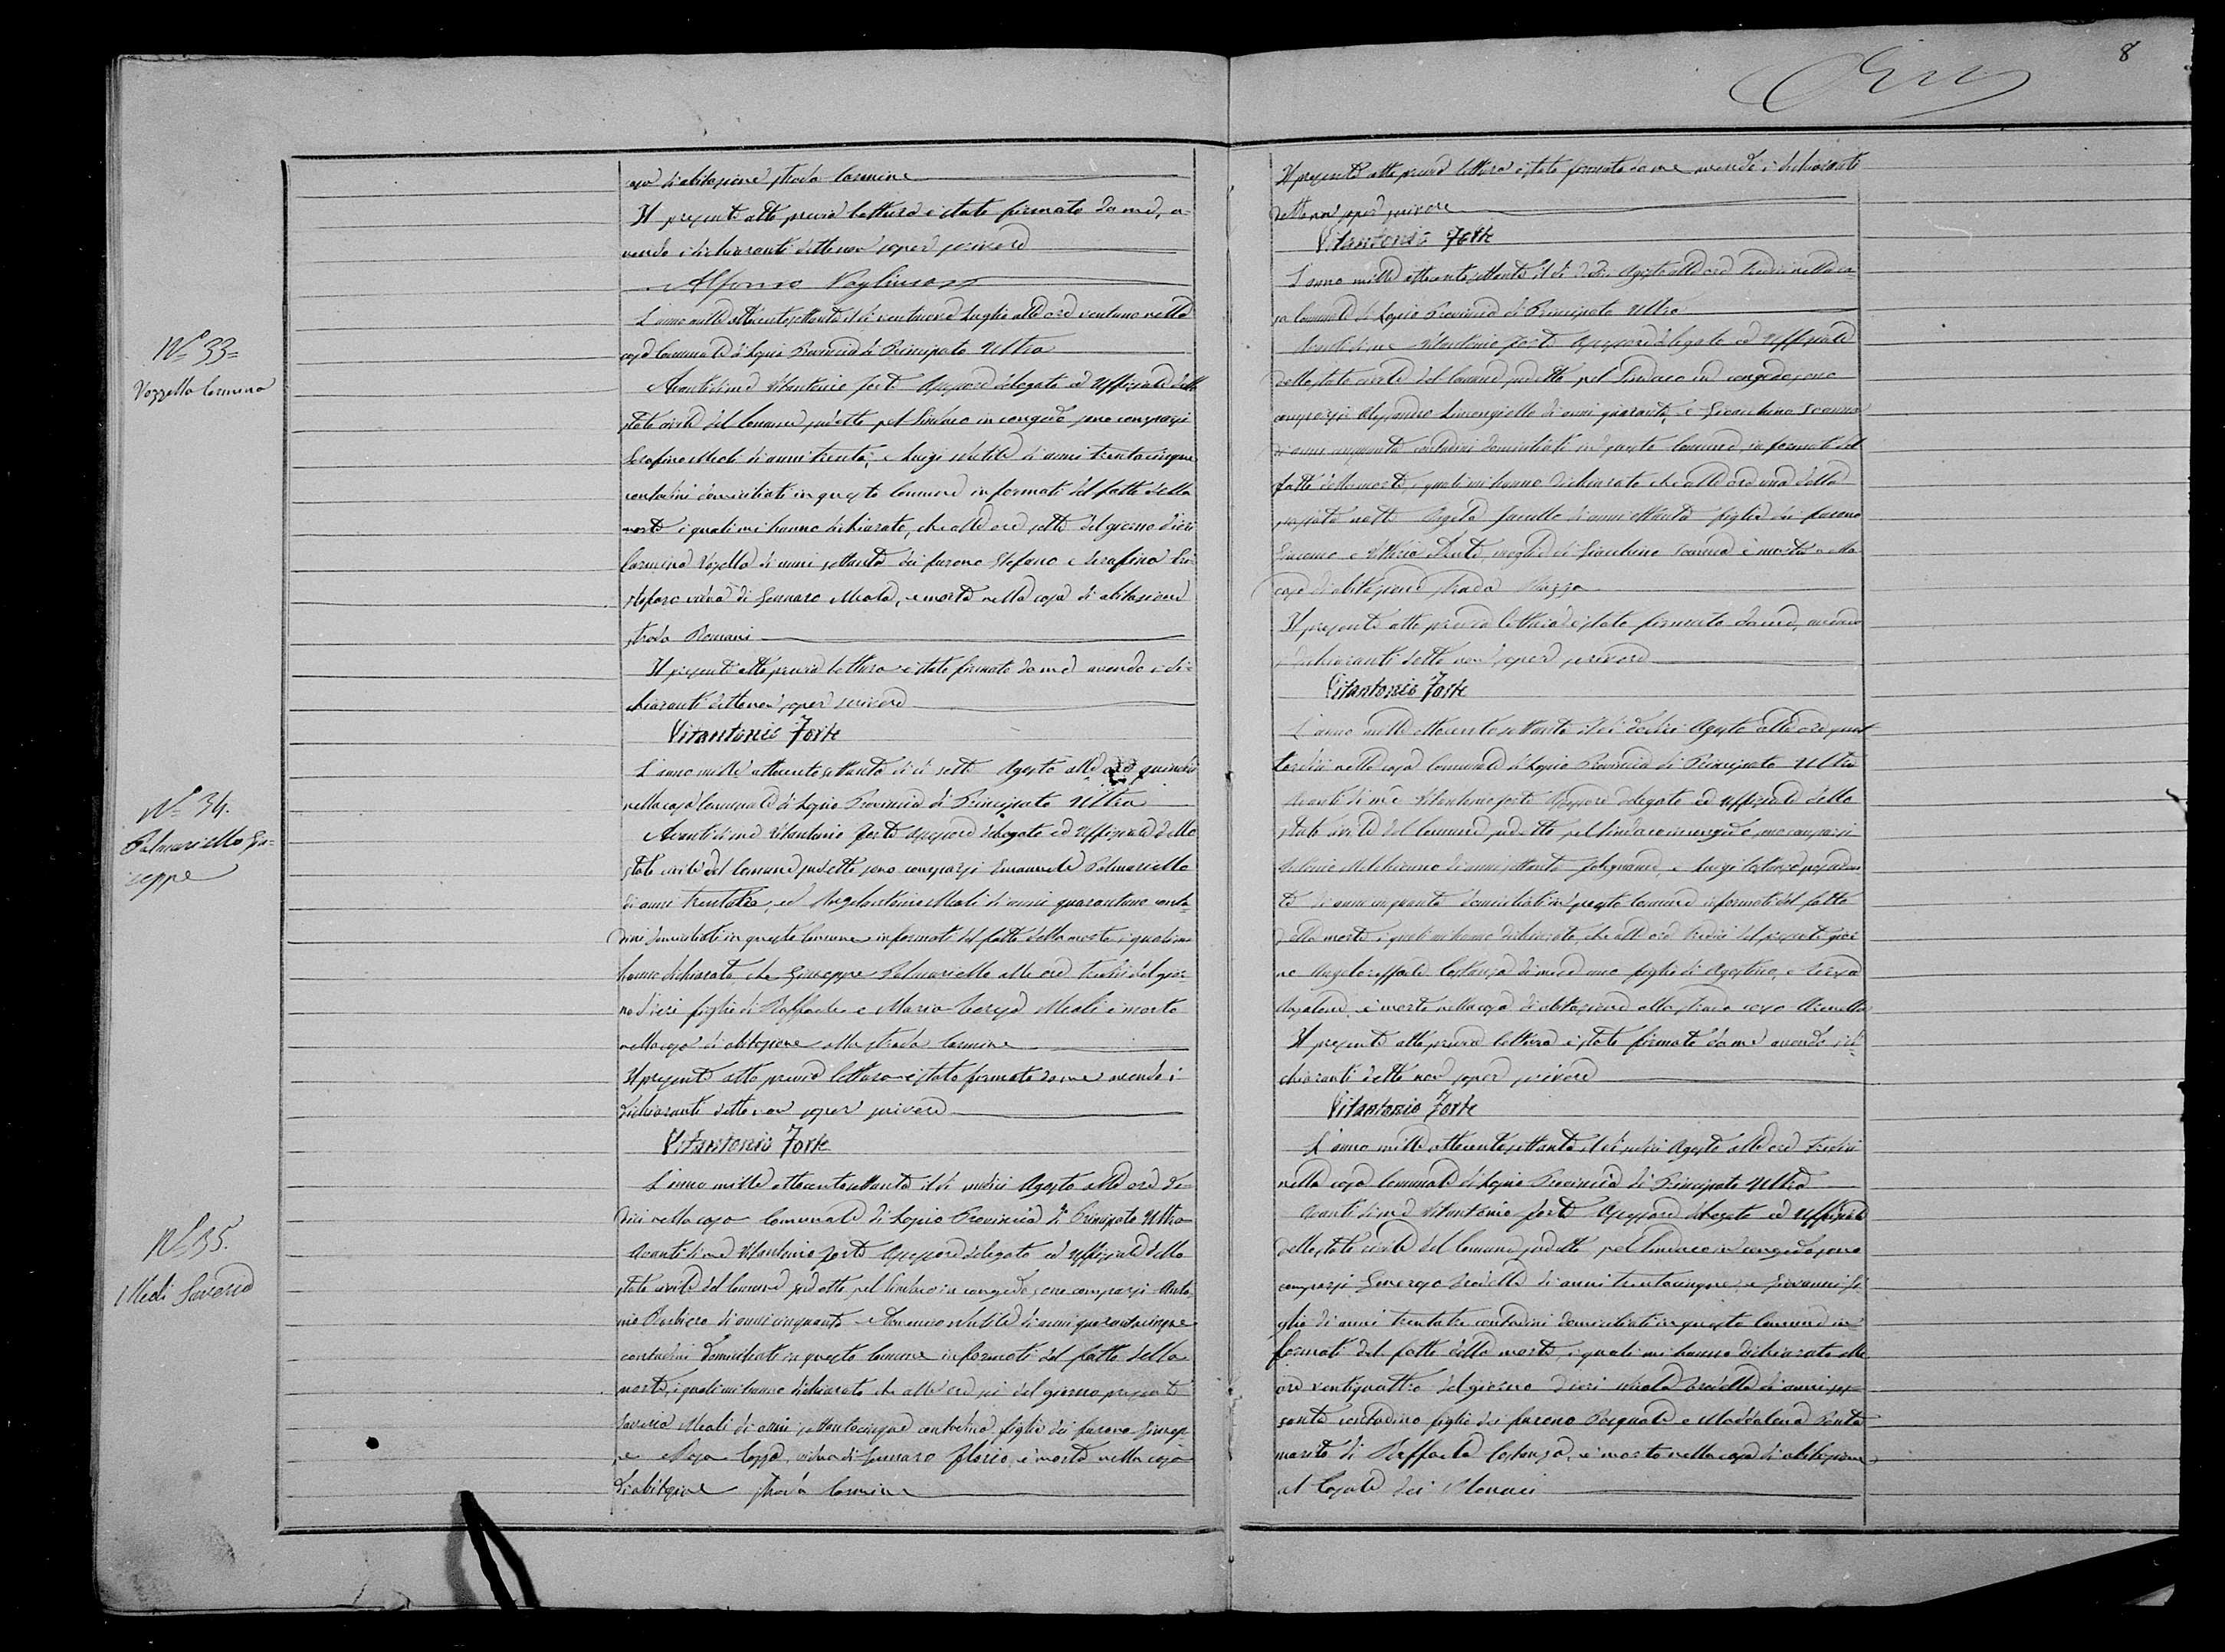 N.° 33=
Vozzella Carmina
N.° 34.
Palmariello Giu=
seppe
N.° 35.
Meoli Saveria
casa di abitazione strada Carmine
Il presente atto previa lettura è stato firmato da me, a-
vendo i dichiaranti detto non saper scrivere
Alfonso
L'anno mille ottocento settanta il dì ventinove Luglio alle ore ventuno nella
casa Comunale di Lapio Provincia di Principato Ultra
Avanti di me Vitantonio Forte Assessore delegato ed Uffiziale dello
stato civile del Comune sudetto pel Sindaco in congedo sono comparsi
Serafino Meoli di anni trenta, e Luigi di anni trentacinque
contadini domiciliati in questo Comune informati del fatto della
morte i quali mi hanno dichiarato, che alle ore sette del giorno d'ieri
Carmina Vozella di anni settanta dei furono Stefano e Serafina
vedova di Gennaro, è morta nella casa di abitazione
strada Romani
Il presente atto previa lettura è stato firmato da me avendo i di-
chiaranti detto non saper scrivere
Vitantonio Forte
L'anno mille ottocento settanta il dì sette Agosto alle ore quindici
nella casa Comunale di Lapio Provincia di Principato Ultra
Avanti di me Vitantonio Forte Assessore delegato ed Uffiziale dello
stato civile del Comune sudetto sono comparsi Emanuele Palmariello
di anni trentatre, ed Angelantonio Meoli di anni quarantuno conta=
dini domiciliati in questo Comune informati del fatto della morte i quali mi
hanno dichiarato che Giuseppe Palmariello alle ore tredici del gior-
no d'ieri figlio di Raffaele e Maria Teresa Meoli è morto
nella casa di abitazione alla strada Carmine
Il presente atto previa lettura è stato firmato da me avendo i
dichiaranti detto non saper scrivere
Vitantonio Forte
L'anno mille ottocento settanta il dì undici Agosto alle ore do-
dici nella casa Comunale di Lapio Provincia di Principato Ultra
Avanti di me Vitantonio Forte Assessore delegato ed Uffiziale dello
stato civile del Comune sudetto pel Sindaco in congedo sono comparsi Anto
nio Barbiero di anni cinquanta di anni quarantacinque
contadini domiciliati in questo Comune informati del fatto della
morte, i quali mi hanno dichiarato che alle ore sei del giorno presente
Saveria Meoli di anni settantacinque contadina figlia dei furono Giusep
pe e Rosa, vedova di Gennaro, è morta nella casa
di abitazione strada Carmine
8
Il presente atto previa lettura è stato firmato da me avendo i dichiaranti
detto non saper scrivere
Vitantonio Forte
L'anno mille ottocento settanta il dì Agosto alle ore tredici nella ca-
sa Comunale di Lapio Provincia di Principato Ultra
Avanti di me Vitantonio Forte Assessore delegato ed Uffiziale
dello stato civile del Comune sudetto pel Sindaco in congedo sono
comparsi Alessandro di anni quaranta, e Gioacchino
di anni cinquanta contadini domiciliati in questo Comune, informati del
fatto della morte, i quali mi hanno dichiarato che alle ore una della
passata notte Angela di anni ottanta figlia dei furono
e Vittoria, moglie di Gioacchino è morta nella
casa di abitazione strada Piazza
Il presente atto previa lettura è stato firmato da me, avendo
i dichiaranti detto non saper scrivere
Vitantonio Forte
L'anno mille ottocento settanta il dì dodici Agosto alle ore quat
tordici nella casa Comunale di Lapio Provincia di Principato Ultra
Avanti di me Vitantonio Forte Assessore delegato ed Uffiziale dello
stato civile del Comune sudetto pel Sindaco in congedo sono comparsi
di anni settanta falegname, e Luigi
di anni cinquanta domiciliati in questo Comune informati del fatto
della morte i quali mi hanno dichiarato, che alle ore tredici del presente gior
no Angelo Raffaele Costanza di mese uno figlio di Agostino, e Teresa
è morto nella casa di abitazione alla strada
Il presente atto previa lettura è stato firmato da me avendo i di-
chiaranti detto non saper scrivere
Vitantonio Forte
L'anno mille ottocento settanta il dì sedici Agosto alle ore tredici
nella casa Comunale di Lapio Provincia di Principato Ultra
Avanti di me Vitantonio Forte Assessore delegato ed Uffiziale
dello stato civile del Comune sudetto pel Sindaco in congedo sono
comparsi di anni trentacinque, e Giovanni
di anni trentatre contadini domiciliati in questo Comune in
formati del fatto della morte, i quali mi hanno dichiarato alle
ore ventiquattro del giorno d'ieri Nicola di anni ses
santa contadino figlio dei furono Pasquale e Maddalena
marito di Raffaela Costanza, è morto nella casa di abitazione
al Casale dei Monaci